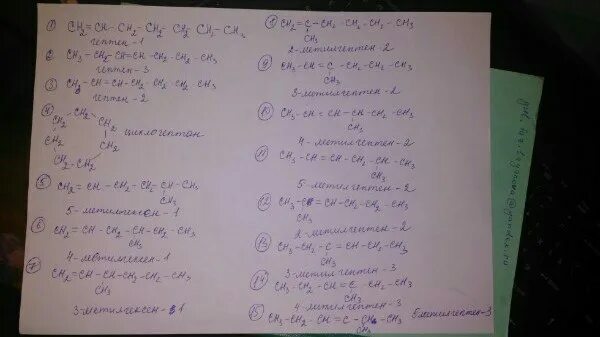 ① CH₂=CH-CH₂-CH₂-CH₂-CH₂-CH₃
гептен-1
② CH₃-CH₂-CH=CH-CH₂-CH₂-CH₃
гептен-3
③ CH₃-CH=CH-CH₂-CH₂-CH₂-CH₃
гептен-2
④
CH₂ CH₂
CH₂ CH₂
CH₂ CH₂
CH₂-CH₂
циклогептан
⑤ CH₂=CH-CH₂-CH₂-CH-CH₃
CH₃
5-метилгексен-1
⑥ CH₂=CH-CH₂-CH-CH₂-CH₃
CH₃
4-метилгексен-1
⑦ CH₂=CH-CH-CH₂-CH₂-CH₃
CH₃
3-метилгексен-1
⑧ CH₂=C-CH₂-CH₂-CH₂-CH₃
CH₃
2-метилгептен-2
⑨ CH₃-CH=C-CH₂-CH₂-CH₃
CH₃
3-метилгептен-2
⑩ CH₃-CH=CH-CH-CH₂-CH₃
CH₃
4-метилгептен-2
⑪ CH₃-CH=CH-CH₂-CH-CH₃
CH₃
5-метилгептен-2
⑫ CH₃-C=CH-CH₂-CH₂-CH₃
CH₃
2-метилгептен-2
⑬ CH₃-CH₂-C=CH-CH₂-CH₃
CH₃
3-метилгептен-3
⑭ CH₃-CH₂-CH=C-CH₂-CH₃
CH₃
4-метилгептен-3
⑮ CH₃-CH₂-CH=C-CH-CH₃
CH₃
5метилгептен-3